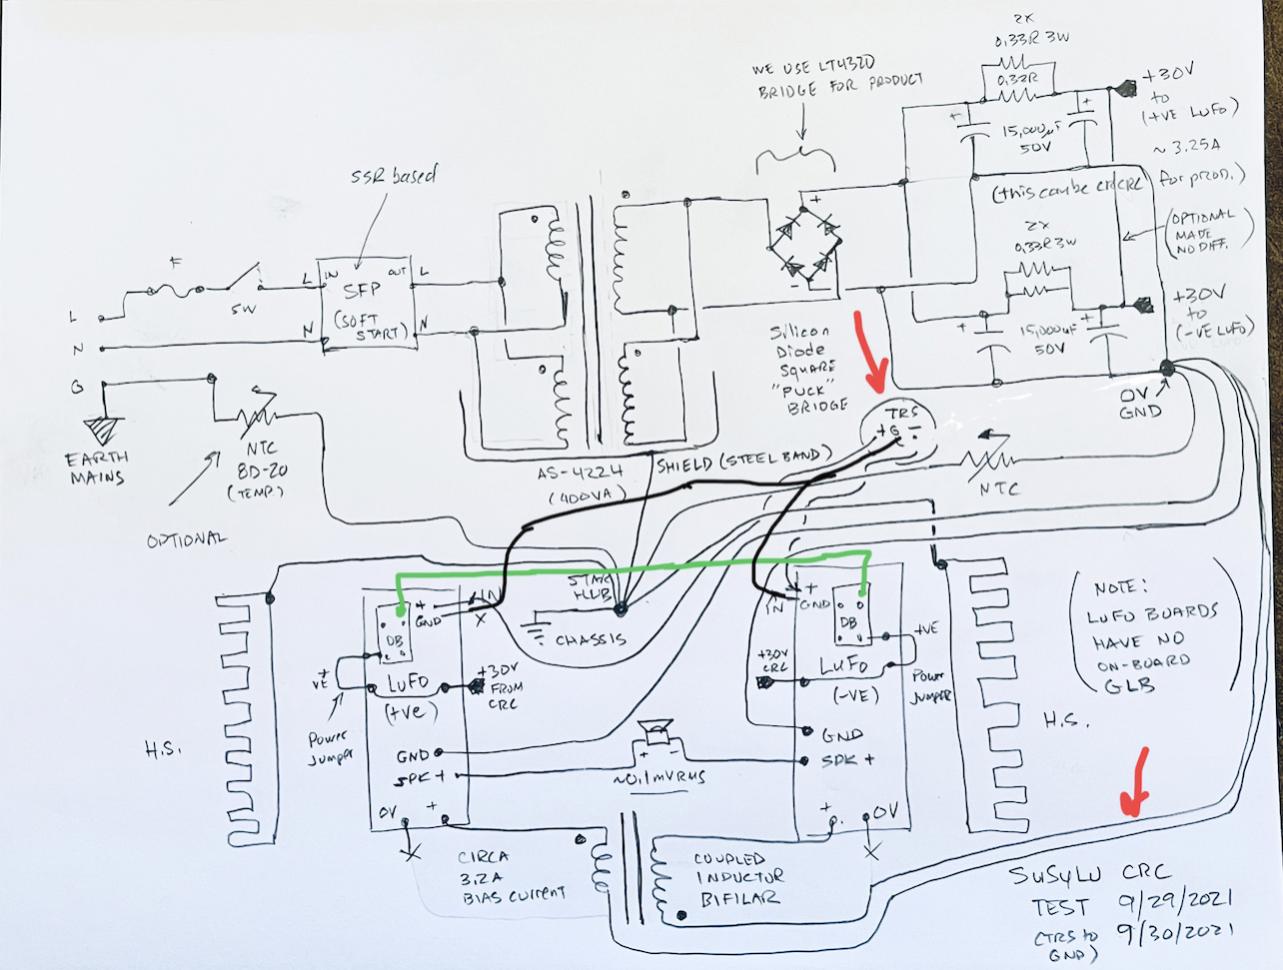 2X
0,33R 3W
0,33R
WE USE LT4320
BRIDGE FOR PRODUCT
+30V
to
(+VE LUFO)
+
+
15,000uF
50V
~ 3.25A
SSR based
(this can be CRCRC) for prod.)
+
2X
0,33R 3W
(OPTIONAL
MADE
NO DIFF.)
F
SW
L
IN
OUT
L
SFP
(SOFT
START)
N
N
L
N
G
-
+
+
15,000uF
50V
+30V
to
(-VE LUFO)
Silicon
Diode
SQUARE
"PUCK"
BRIDGE
EARTH
MAINS
NTC
8D-20
(TEMP.)
OPTIONAL
TRS
+ G -
0V
GND
AS-4224
(400VA)
SHIELD (STEEL BAND)
NTC
STAR
HUB
CHASSIS
+
GND
IN
X
DB
+VE
LUFO
(+ve)
+30V
FROM
CRC
Power
Jumper
H.S.
GND
SPK +
0V
+
+
-
~0.1mVRMS
IN
+
GND
DB
+VE
+30V
CRC
LUFO
(-VE)
Power
Jumper
GND
SPK +
+
0V
H.S.
(NOTE:
LUFO BOARDS
HAVE NO
ON-BOARD
GLB)
CIRCA
3.2A
BIAS CURRENT
COUPLED
INDUCTOR
BIFILAR
SUSYLU CRC
TEST 9/29/2021
(TRS to 9/30/2021
GND)